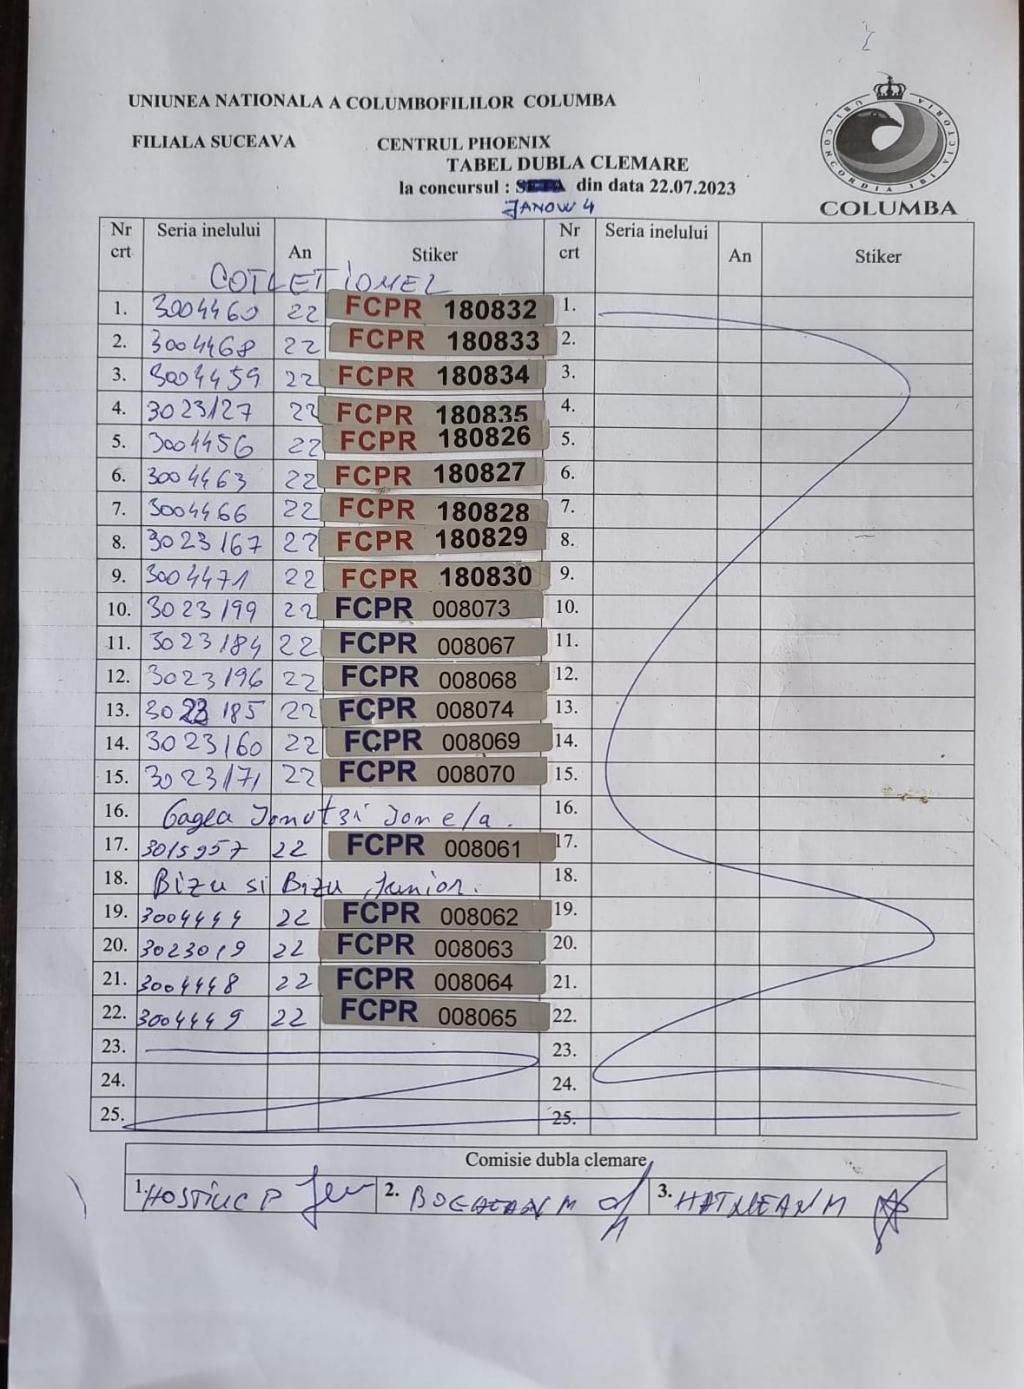 UNIUNEA NATIONALA A COLUMBOFILILOR COLUMBA
FILIALA SUCEAVA CENTRUL PHOENIX
TABEL DUBLA CLEMARE
la concursul : din data 22.07.2023
JANOW 4
URI CONCORDIA IBI VICTORIA
COLUMBA
Nr crt Seria inelului An Stiker Nr crt Seria inelului An Stiker
COTLET IONEL
1. 3004460 22 FCPR 180832 1.
2. 3004468 22 FCPR 180833 2.
3. 3004459 22 FCPR 180834 3.
4. 3023127 22 FCPR 180835 4.
5. 3004456 22 FCPR 180826 5.
6. 3004463 22 FCPR 180827 6.
7. 3004466 22 FCPR 180828 7.
8. 3023167 22 FCPR 180829 8.
9. 3004471 22 FCPR 180830 9.
10. 3023199 22 FCPR 008073 10.
11. 3023184 22 FCPR 008067 11.
12. 3023196 22 FCPR 008068 12.
13. 3023185 22 FCPR 008074 13.
14. 3023160 22 FCPR 008069 14.
15. 3023171 22 FCPR 008070 15.
16. Gagea Ionut si Ionela. 16.
17. 3015957 22 FCPR 008061 17.
18. Bizu si Bizu Junior. 18.
19. 3004444 22 FCPR 008062 19.
20. 3023019 22 FCPR 008063 20.
21. 3004448 22 FCPR 008064 21.
22. 3004449 22 FCPR 008065 22.
23. 23.
24. 24.
25. 25.
Comisie dubla clemare
1. HOSTIUC P 2. M 3. M